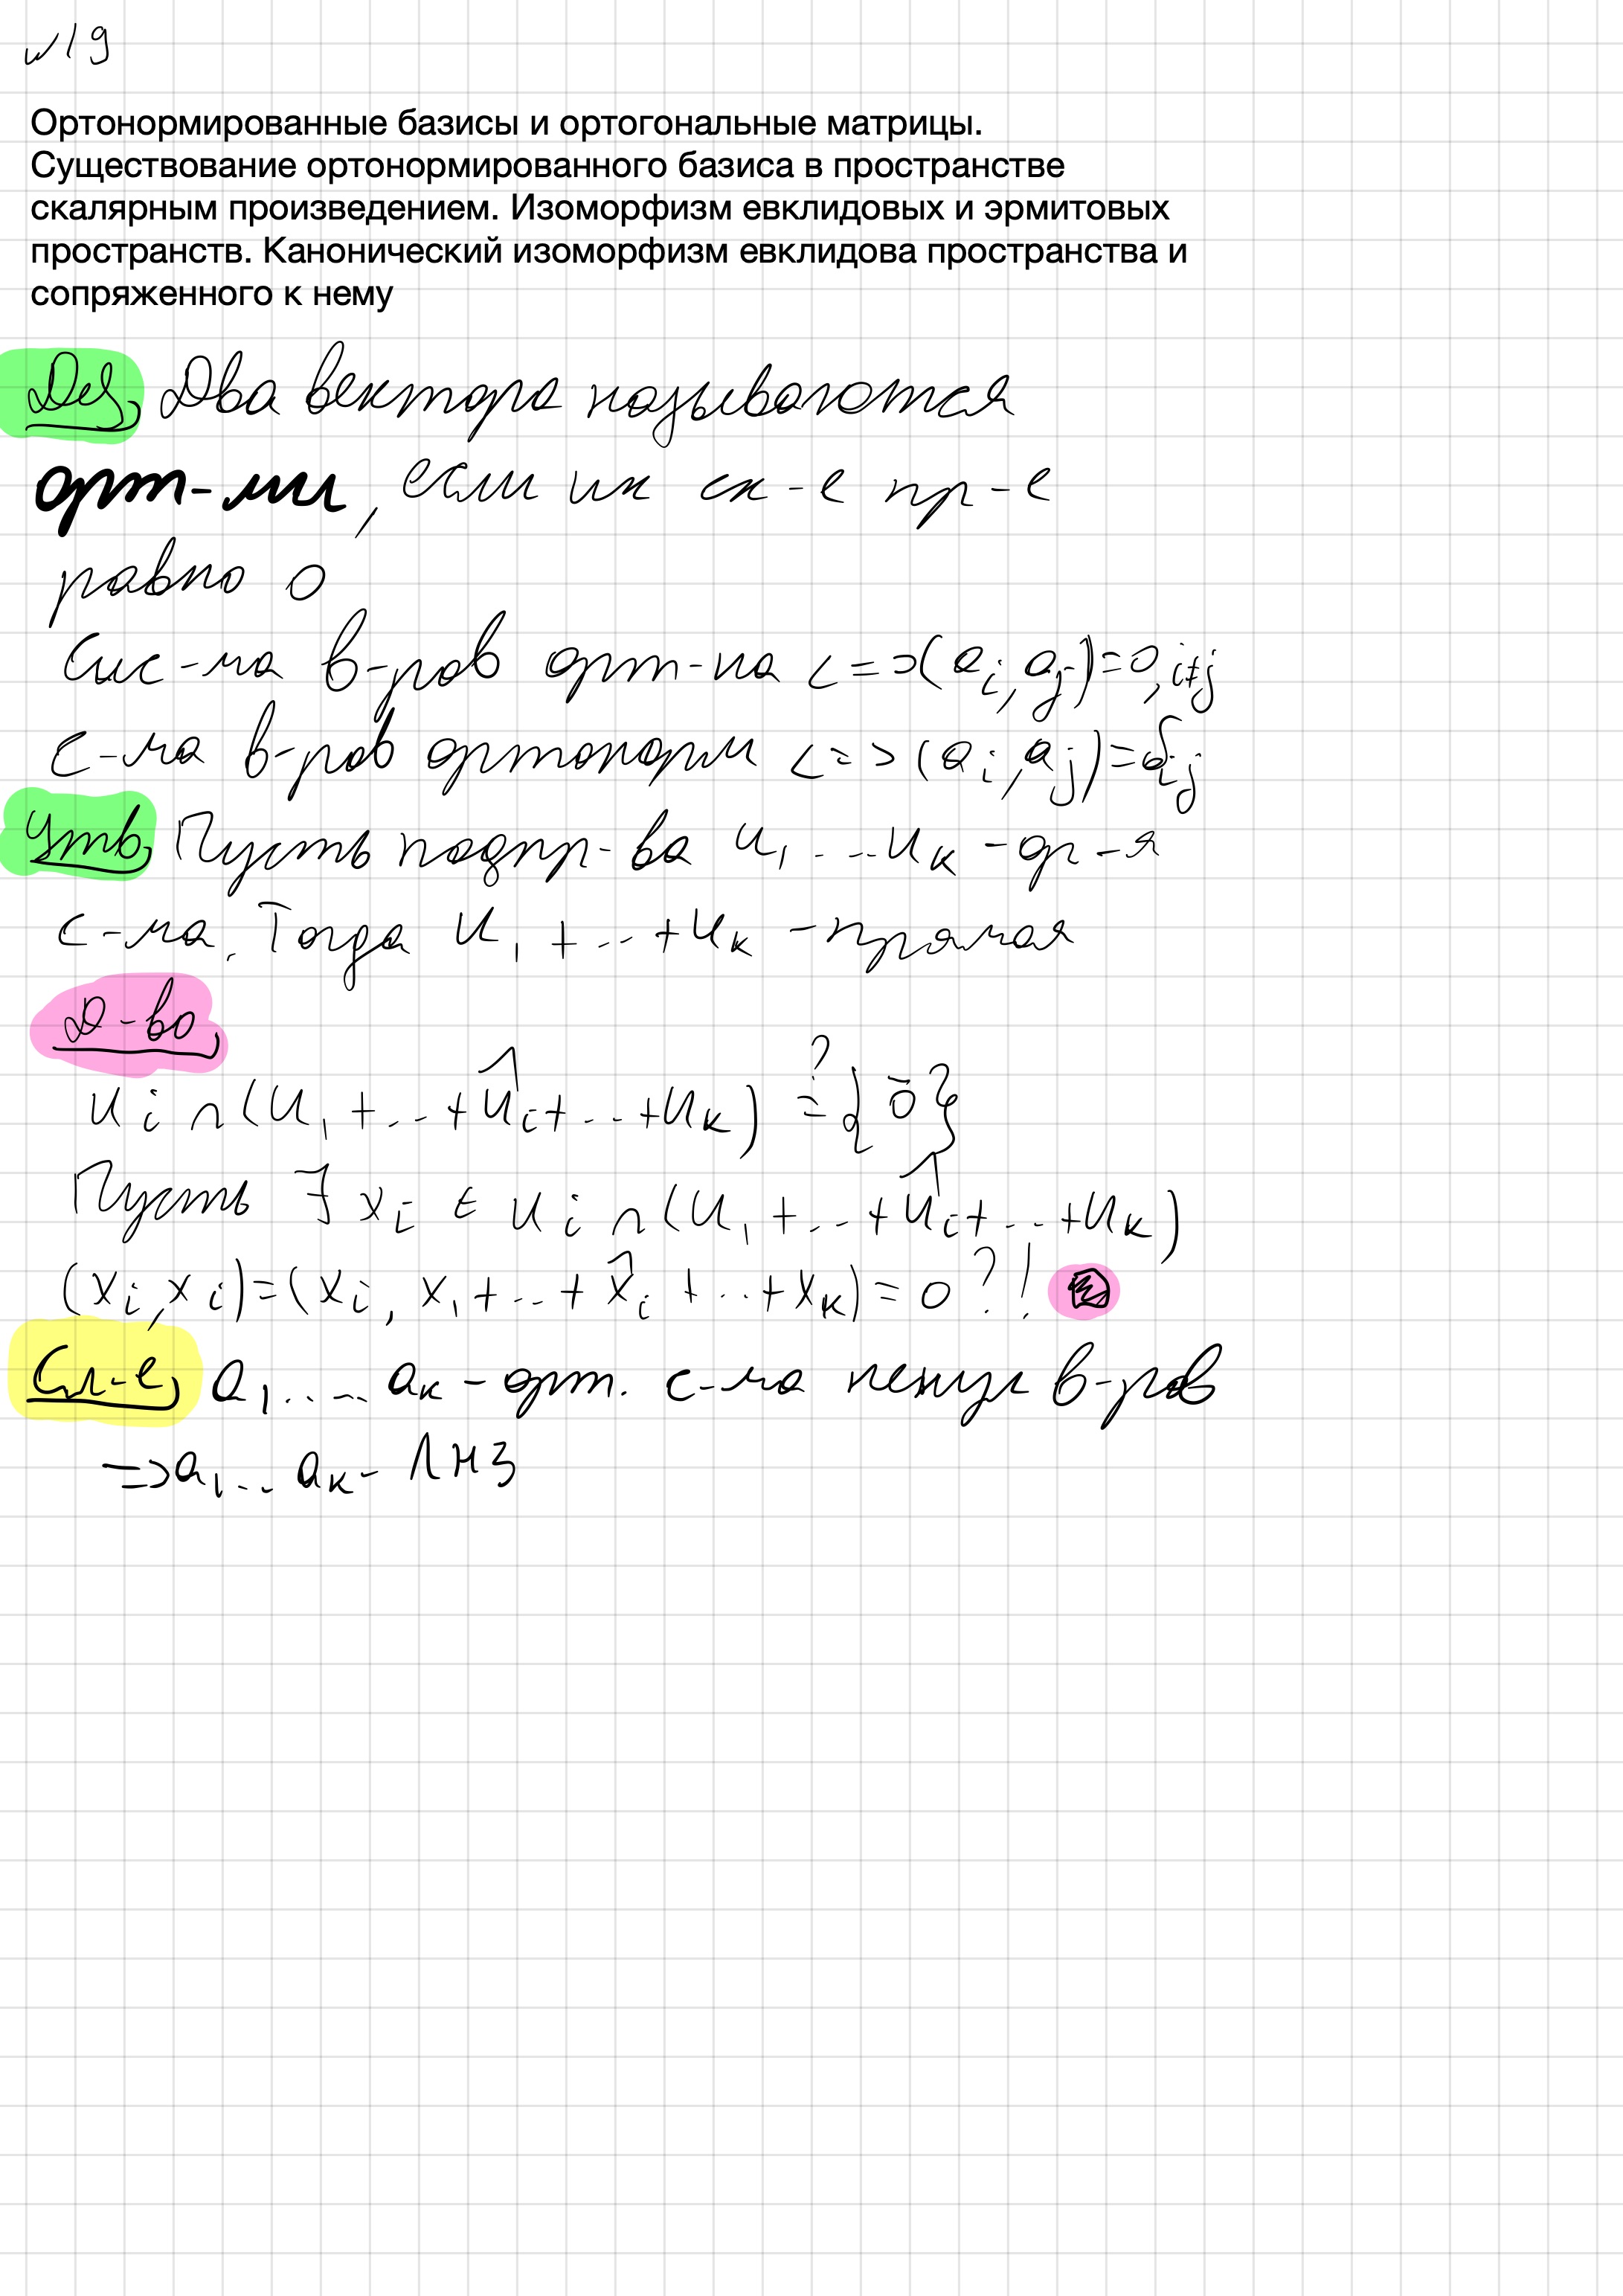 №19
Ортонормированные базисы и ортогональные матрицы.
Существование ортонормированного базиса в пространстве
скалярным произведением. Изоморфизм евклидовых и эрмитовых
пространств. Канонический изоморфизм евклидова пространства и
сопряженного к нему
Def. Два вектора называются
орт-ми, если их ск-е пр-е
равно 0
Сис-ма в-ров орт-на <=>(a_i, a_j)=0, i≠j
С-ма в-ров ортонорм <=>(a_i, a_j)=δ_ij
Утв. Пусть подпр-ва U_1 ... U_k - ор-я
с-ма. Тогда U_1 + ... + U_k - прямая
Д-во.
U_i ∩ (U_1 + ... + Û_i + ... + U_k) =? {0̄}
Пусть ∃ x_i ∈ U_i ∩ (U_1 + ... + Û_i + ... + U_k)
(x_i, x_i) = (x_i, x_1 + ... + x̂_i + ... + x_k) = 0 ?!
Сл-е. a_1 .... a_k - орт. с-ма ненул в-ров
=> a_1 ... a_k - ЛНЗ